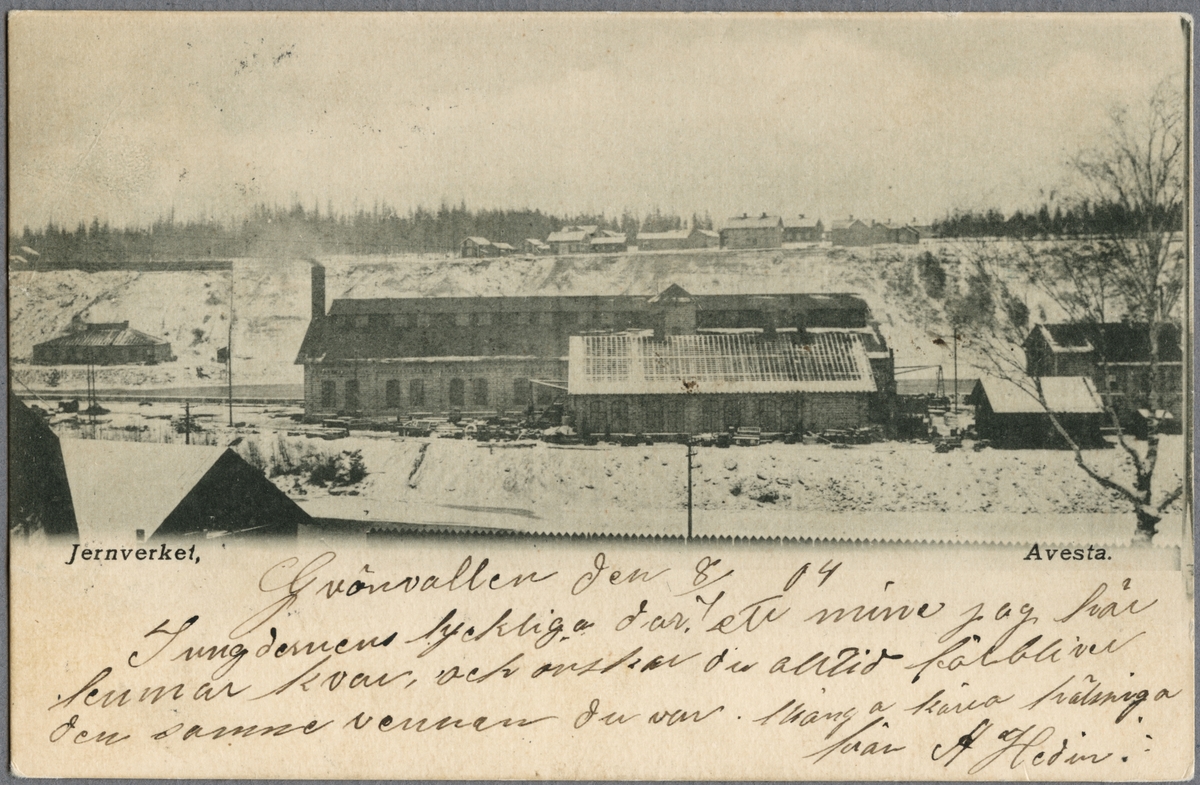 Jernverket, Avesta.
Grönvallen den 8/ 04
Ungdomens lyckliga dar! ett minne jag här
lemnar kvar, och önskar du alltid förbliver
den samme vennen du var. Många kära hälsninga
från A Hedin.